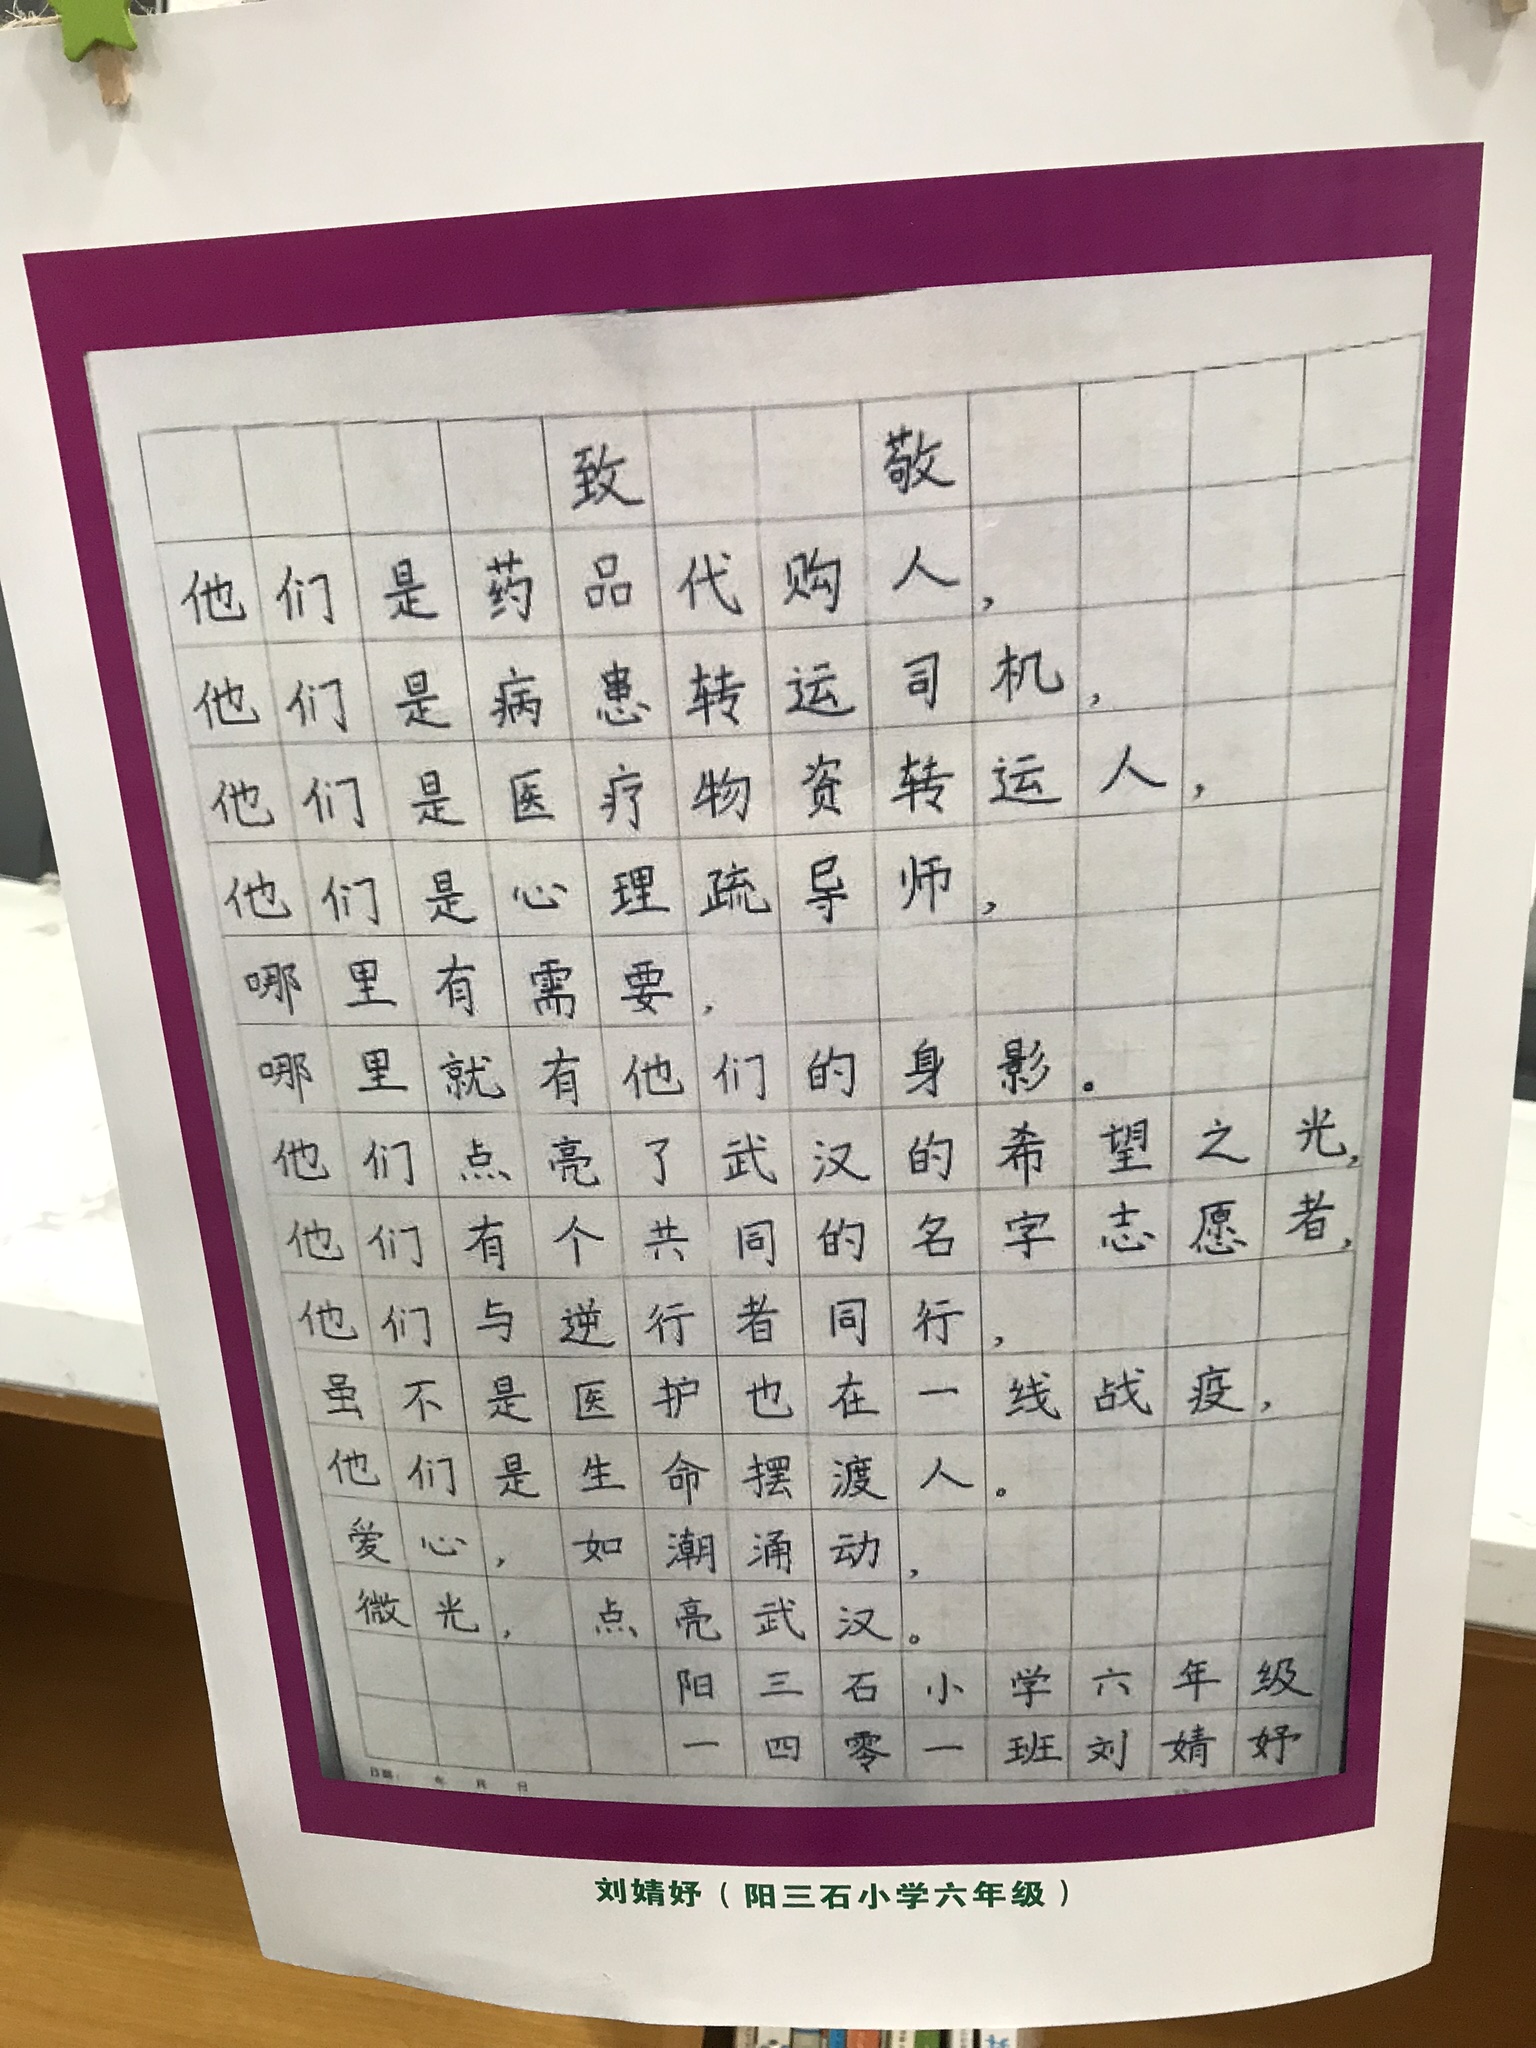 致 敬
他们是药品代购人，
他们是病患转运司机，
他们是医疗物资转运人，
他们是心理疏导师，
哪里有需要，
哪里就有他们的身影。
他们点亮了武汉的希望之光，
他们有个共同的名字志愿者，
他们与逆行者同行，
虽不是医护也在一线战疫，
他们是生命摆渡人。
爱心，如潮涌动，
微光，点亮武汉。
阳三石小学六年级
一四零一班刘婧妤
日期： 年 月 日
刘婧妤（阳三石小学六年级）